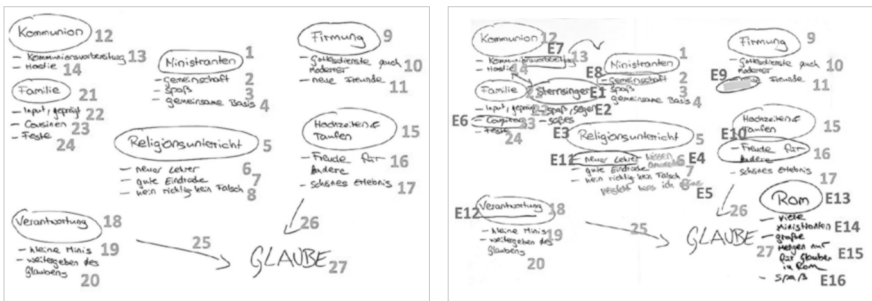 Kommunion 12
- Kommunionvorbereitung 13
- Hostie 14
Familie 21
- Input, geprägt 22
- Cousinen 23
- Feste 24
Ministranten 1
- gemeinschaft 2
- Spaß 3
- gemeinsame Basis 4
Religionsunterricht 5
- Neuer Lehrer 6
- gute Eindrücke 7
- kein richtig kein Falsch 8
Firmung 9
- Gottesdienste auch moderner 10
- neue Freunde 11
Hochzeiten & Taufen 15
- Freude für Andere 16
- schönes Erlebnis 17
Verantwortung 18
- kleine Minis 19
- weitergeben des Glaubens 20
25
26
GLAUBE 27
Kommunion 12
E7
- Kommunionvorbereitung 13
- Hostie 14
Familie
Sternsinger E1
- Input, geprägt
- Spaß, Segen E2
E6
- Cousinen 23
- süßes
- Feste
24
E3
Ministranten 1
E8
- gemeinschaft 2
- Spaß 3
- gemeinsame Basis 4
Religionsunterricht 5
E11
- Neuer Lehrer
6 E4
- gute Eindrücke 7
- kein richtig kein Falsch
was ich
E5
Firmung 9
- Gottesdienste auch moderner 10
E9
Freunde 11
E10
Hochzeiten & Taufen 15
- Freude für Andere 16
- schönes Erlebnis 17
E12
Verantwortung 18
- kleine Minis 19
- weitergeben des Glaubens 20
25
26
GLAUBE 27
Rom E13
- viele Ministranten E14
- große Mengen nur für Glauben in Rom E15
- Spaß E16